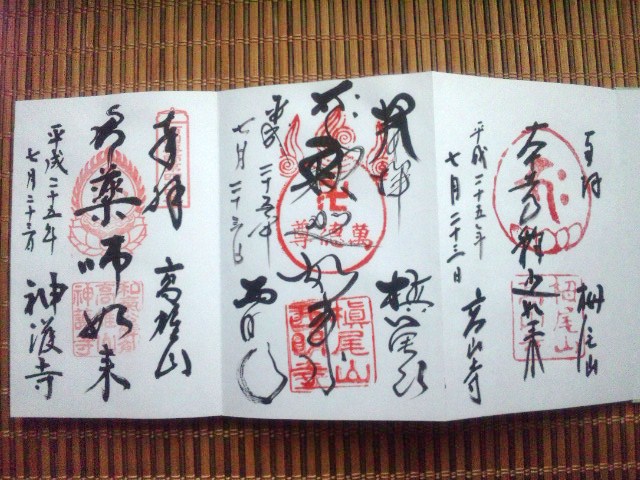 奉拝 栂尾山
釈迦如来
平成二十五年
七月二十三日 高山寺
奉拝 槇尾山
釈迦如来
萬徳尊
槇尾山
西明寺
平成二十五年
七月二十三日 西明寺
奉拝 高雄山
薬師如来
平成二十五年
七月二十三日 神護寺